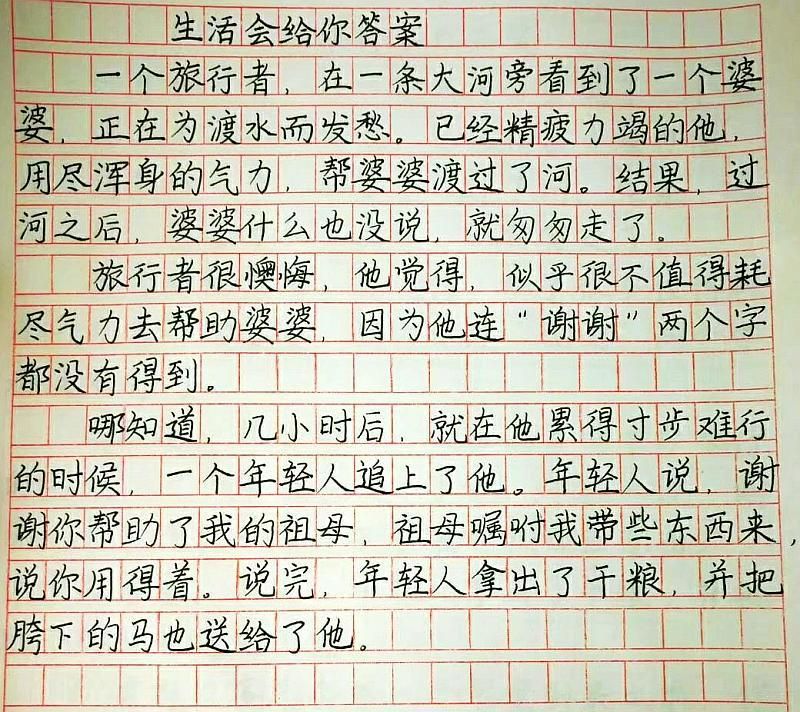 生活会给你答案
一个旅行者，在一条大河旁看到了一个婆
婆，正在为渡水而发愁。已经精疲力竭的他，
用尽浑身的气力，帮婆婆渡过了河。结果，过
河之后，婆婆什么也没说，就匆匆走了。
旅行者很懊悔，他觉得，似乎很不值得耗
尽气力去帮助婆婆，因为他连“谢谢”两个字
都没有得到。
哪知道，几小时后，就在他累得寸步难行
的时候，一个年轻人追上了他。年轻人说，谢
谢你帮助了我的祖母，祖母嘱咐我带些东西来，
说你用得着。说完，年轻人拿出了干粮，并把
胯下的马也送给了他。